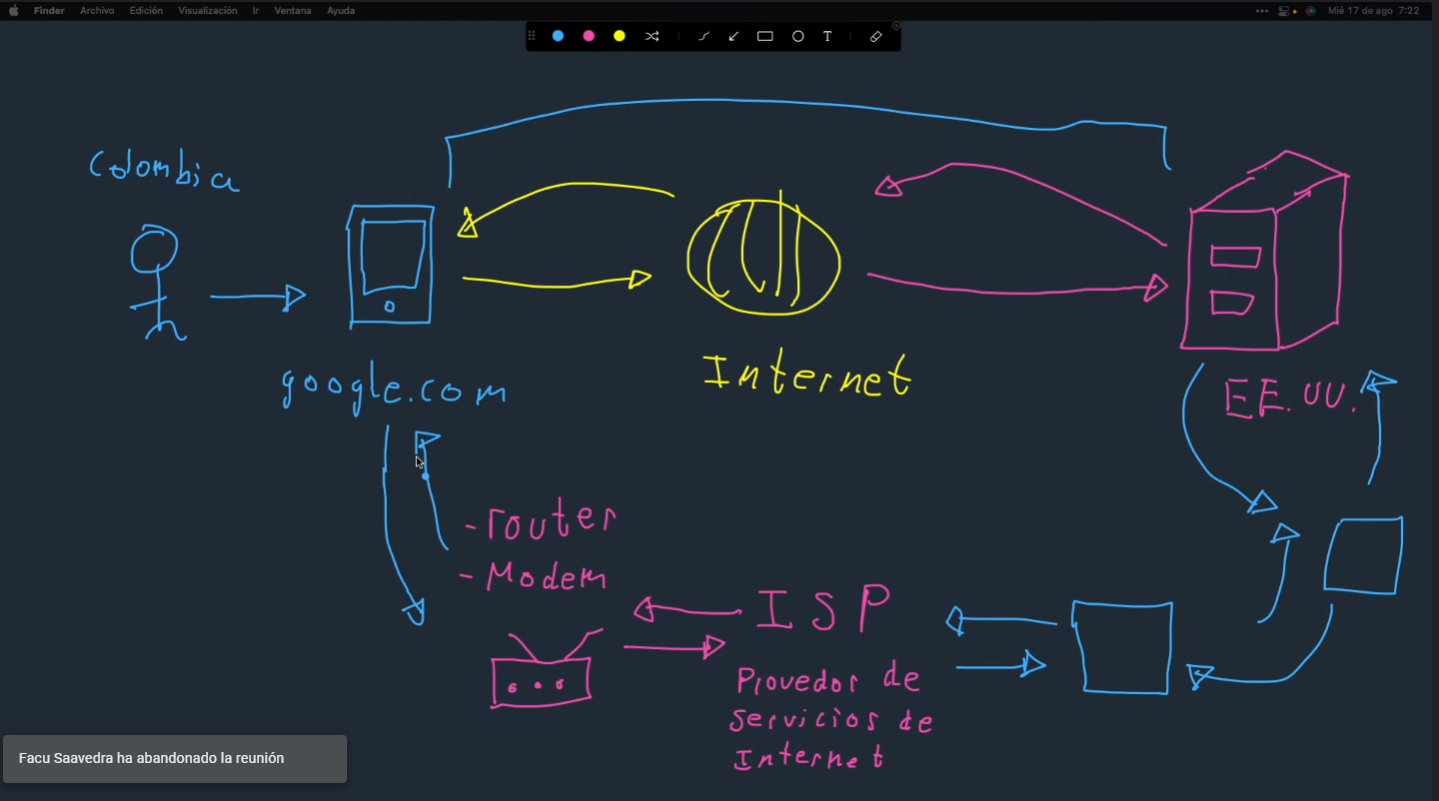 Finder Archivo Edición Visualización Ir Ventana Ayuda
Mié 17 de ago 7:22
T
Colombia
google.com
Internet
EE.UU.
- router
- Modem
ISP
Provedor de
Servicios de
Internet
Facu Saavedra ha abandonado la reunión